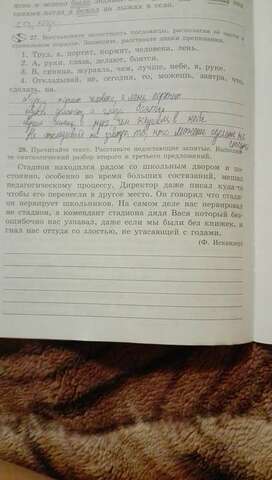 27. Восстановите целостность пословицы, расположив их части в
правильном порядке. Запишите, расставьте знаки препинания.
1. Труд, а, портит, кормит, человека, лень.
2. А, руки, глаза, делают, боятся.
3. В, синица, журавль, чем, лучше, небе, в, руке.
4. Откладывай, не, сегодня, то, можешь, завтра, что,
сделать, на.
Труд кормит человека, а лень портит
руки делают, а глаза боятся
синица в руке чем журавль в небе
Не откладывай на завтра то, что можешь сделать на
сегодня
28. Прочитайте текст. Расставьте недостающие запятые. Выполни-
те синтаксический разбор второго и третьего предложений.
Стадион находился рядом со школьным двором и по-
стоянно, особенно во время больших состязаний, мешал
педагогическому процессу. Директор даже писал куда-то
чтобы его перенесли в другое место. Он говорил что стади-
он нервирует школьников. На самом деле нас нервировал
не стадион, а комендант стадиона дядя Вася который без-
ошибочно нас узнавал, даже если мы были без книжек, и
гнал нас оттуда со злостью, не угасающей с годами.
(Ф. Искандер)